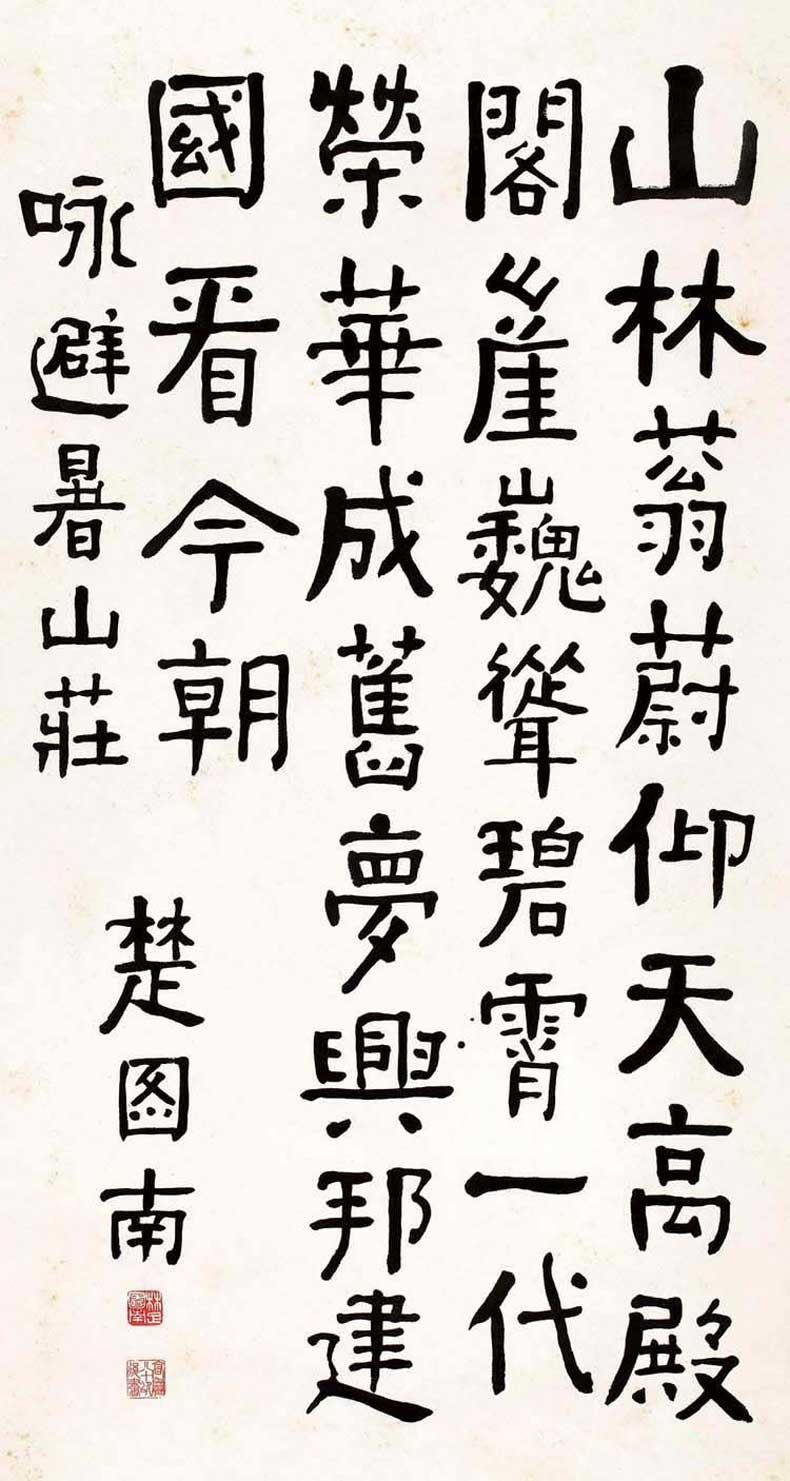 山林蓊蔚仰天高殿
閣崔巍聳碧霄一代
榮華成舊夢興邦建
國看今朝
咏避暑山莊
楚图南
楚圖南